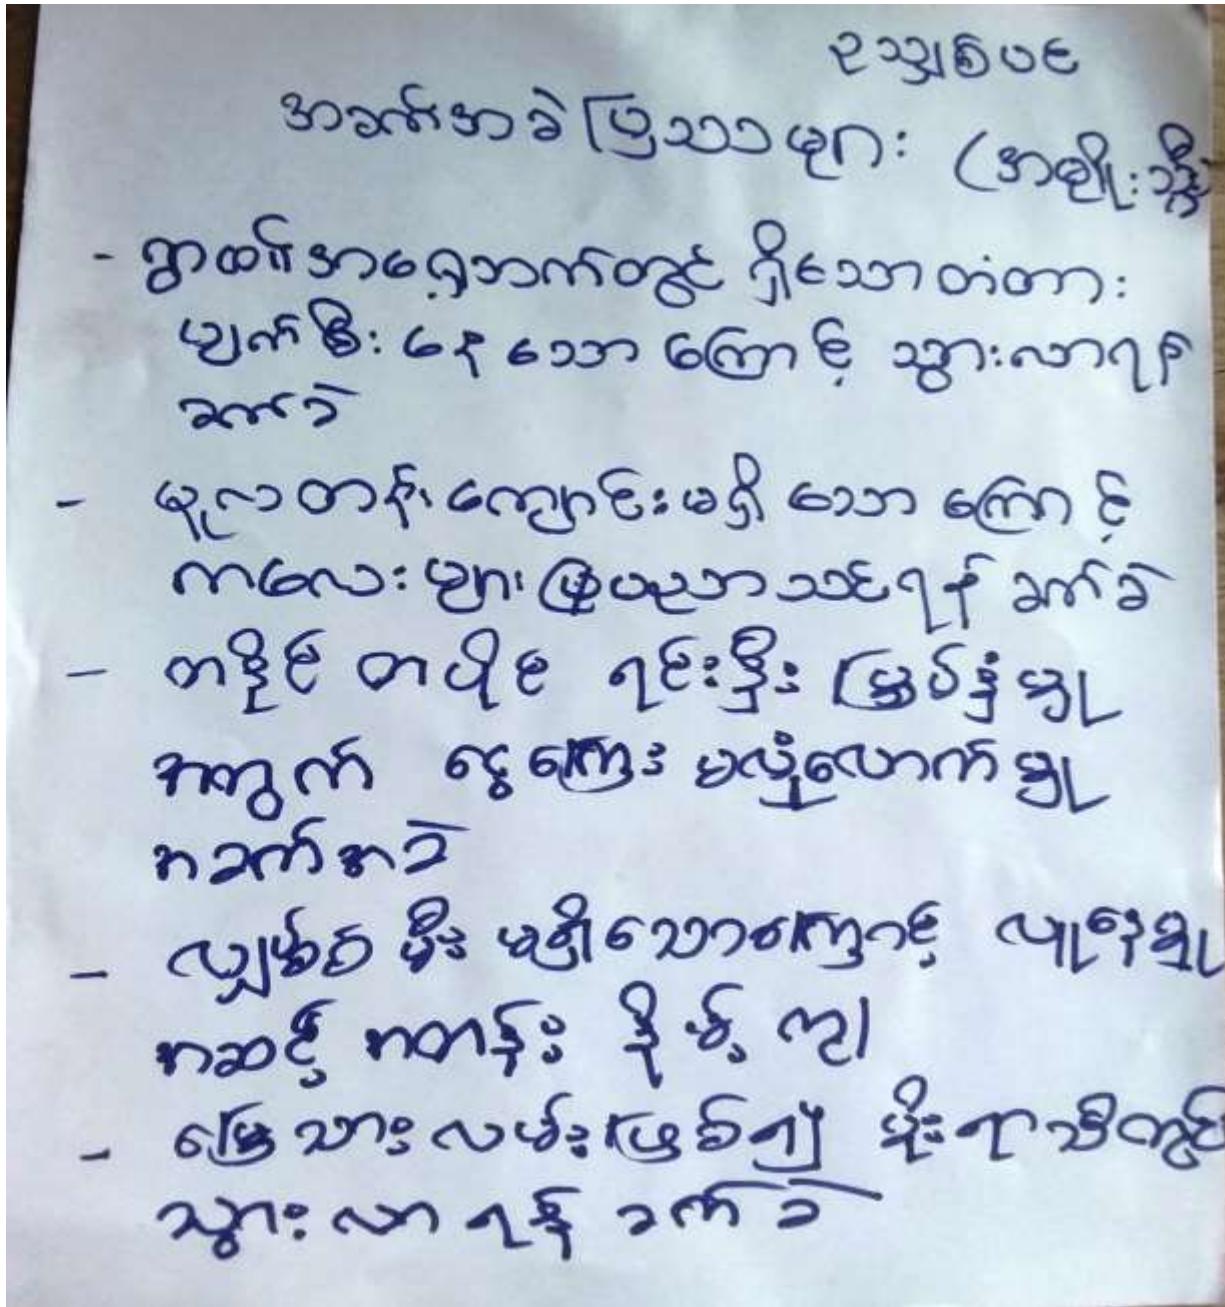 အခက်အခဲပြဿနာများ (အမျိုး
- ရွာထိပ်အရှေ့ဘက်တွင် ရှိသောတံတား
ပျက်စီးနေသောကြောင့် သွားလာရန်
ခက်ခဲ
- မူလတန်းကျောင်းမရှိသောကြောင့်
ကလေးများ ပညာသင်ရန် ခက်ခဲ
- တနိုင် တပိုင် ရင်းနှီး မြှုပ်နှံမှု
အတွက် ငွေကြေး မလုံလောက်မှု
အခက်အခဲ
- လျှပ်စစ် မီး မရှိသောကြောင့် လူနေမှု
အဆင့် အတန်း နိမ့် ကျ
- မြေသားလမ်းဖြစ်၍ မိုးရာသီတွင်
သွားလာ ရန် ခက်ခဲ